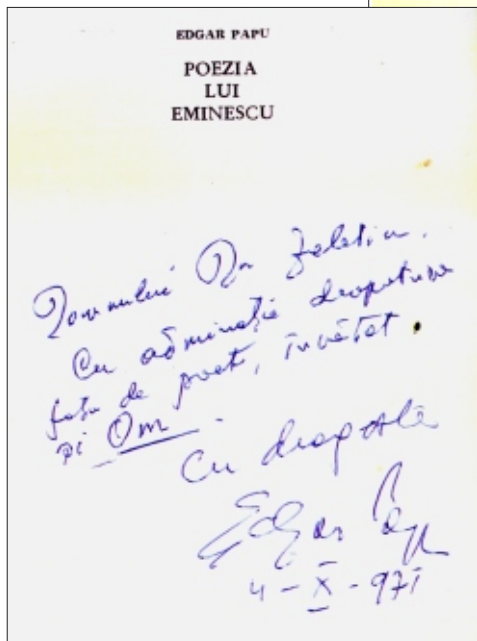 EDGAR PAPU
POEZIA
LUI
EMINESCU
Domnului Zeletin.
Cu admirație
față de poet, învățat
și Om
Cu dragoste
Edgar Papu
4-X-971